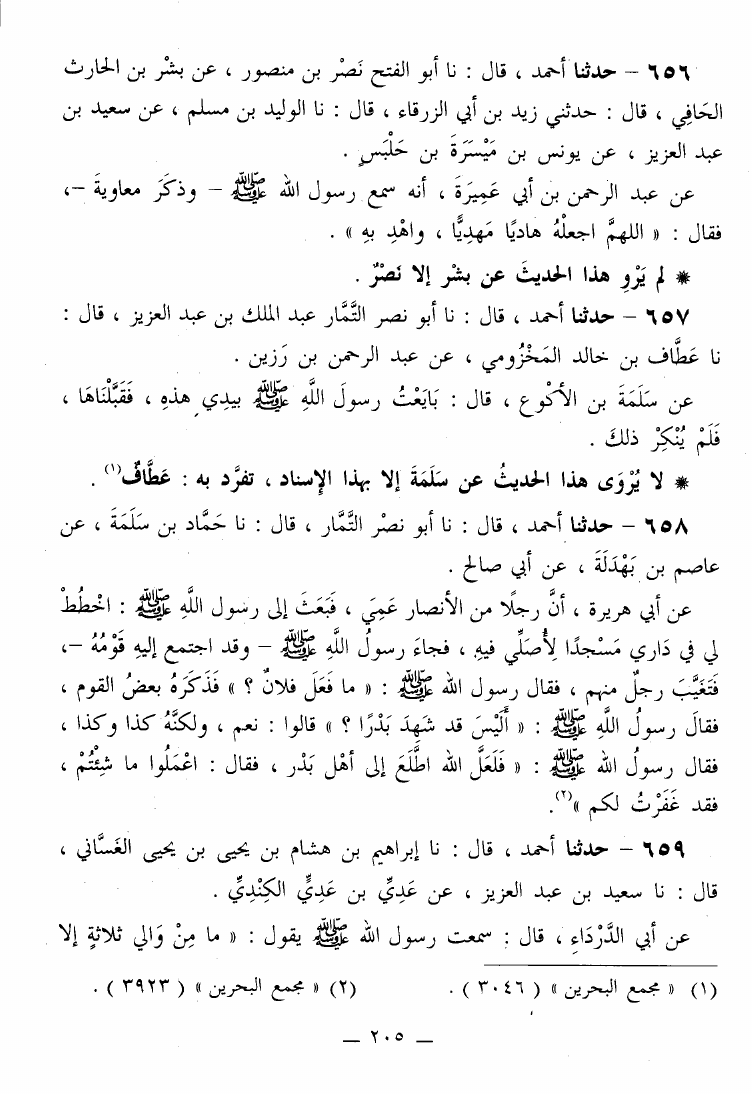 ٦٥٦ – حدثنا أحمد ، قال : نا أبو الفتح نَصْر بن منصور ، عن بشْر بن الحارث
الحَافِي ، قال : حدثني زيد بن أبي الزرقاء ، قال : نا الوليد بن مسلم ، عن سعيد بن
عبد العزيز ، عن يونس بن مَيْسَرَةَ بن حَلْبَسٍ .
عن عبد الرحمن بن أبي عَمِيرَةَ ، أنه سمع رسول الله ﷺ – وذكَرَ معاويةَ –،
فقال : « اللهمَّ اجعلْهُ هاديًا مَهديًّا ، واهْدِ بهِ » .
* لم يَرْوِ هذا الحديثَ عن بشْر إلا نَصْرٌ .
٦٥٧ – حدثنا أحمد ، قال : نا أبو نصر التَّمَّار عبد الملك بن عبد العزيز ، قال :
نا عَطَّاف بن خالد المَخْزُومي ، عن عبد الرحمن بن رَزين .
عن سَلَمَةَ بن الأكْوع ، قال : بَايَعْتُ رسولَ اللَّهِ ﷺ بيدِي هذهِ ، فَقَبَّلْنَاهَا ،
فَلَمْ يُنْكِرْ ذلكَ .
* لا يُرْوَى هذا الحديثُ عن سَلَمَةَ إلا بهذا الإسناد ، تفرَّد به : عَطَّافٌ(١) .
٦٥٨ – حدثنا أحمد ، قال : نا أبو نصْر التَّمَّار ، قال : نا حَمَّاد بن سَلَمَةَ ، عن
عاصم بن بَهْدَلَةَ ، عن أبي صالح .
عن أبي هريرة ، أنَّ رجلًا من الأنصار عَمِيَ ، فَبَعَثَ إلى رسول اللَّهِ ﷺ : اخْطُطْ
لي في دَارِي مَسْجدًا لِأُصَلِّي فيهِ ، فجاءَ رسولُ اللَّهِ ﷺ – وقد اجتمع إليهِ قَوْمُهُ –،
فَتَغَيَّبَ رجلٌ منهم ، فقال رسول الله ﷺ : « ما فَعَل فلانٌ ؟ » فَذَكَرَهُ بعضُ القوم ،
فقالَ رسولُ اللَّهِ ﷺ : « أَلَيْسَ قد شَهِدَ بَدْرًا ؟ » قالوا : نعم ، ولكنَّهُ كذا وكذا ،
فقال رسولُ الله ﷺ : « فَلَعَلَّ الله اطَّلَعَ إلى أهْل بَدْر ، فقال : اعْمَلُوا ما شِئْتُمْ ،
فقد غَفَرْتُ لكم »(٢).
٦٥٩ – حدثنا أحمد ، قال : نا إبراهيم بن هشام بن يحيى بن يحيى الغَسَّاني ،
قال : نا سعيد بن عبد العزيز ، عن عَدِيِّ بن عَدِيٍّ الكِنْدِيِّ .
عن أبي الدَّرْدَاءِ ، قال : سمعت رسول الله ﷺ يقول : « ما مِنْ وَالي ثلاثةٍ إلا
(١) « مجمع البحرين » ( ٣٠٤٦ ) . (٢) « مجمع البحرين » ( ٣٩٢٣ ) .
– ٢٠٥ –